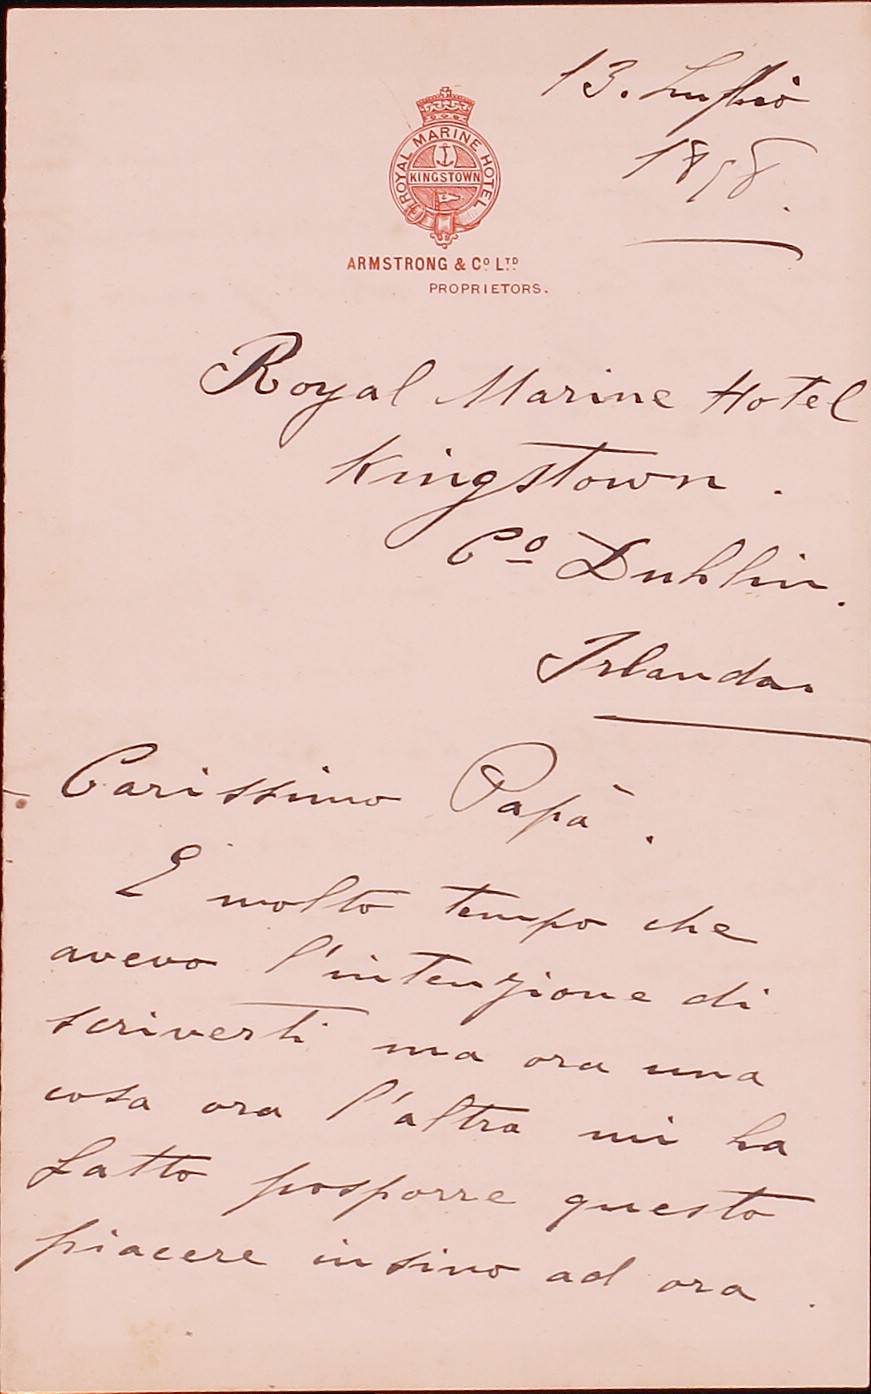 13. Luglio
1898.
ROYAL MARINE HOTEL
KINGSTOWN
ARMSTRONG & Co. LTD.
PROPRIETORS.
Royal Marine Hotel
Kingstown.
Co Dublin.
Irlanda.
Carissimo Papà.
E molto tempo che
avevo l'intenzione di
scriverti ma ora una
cosa ora l'altra mi ha
fatto posporre questo
piacere insino ad ora.